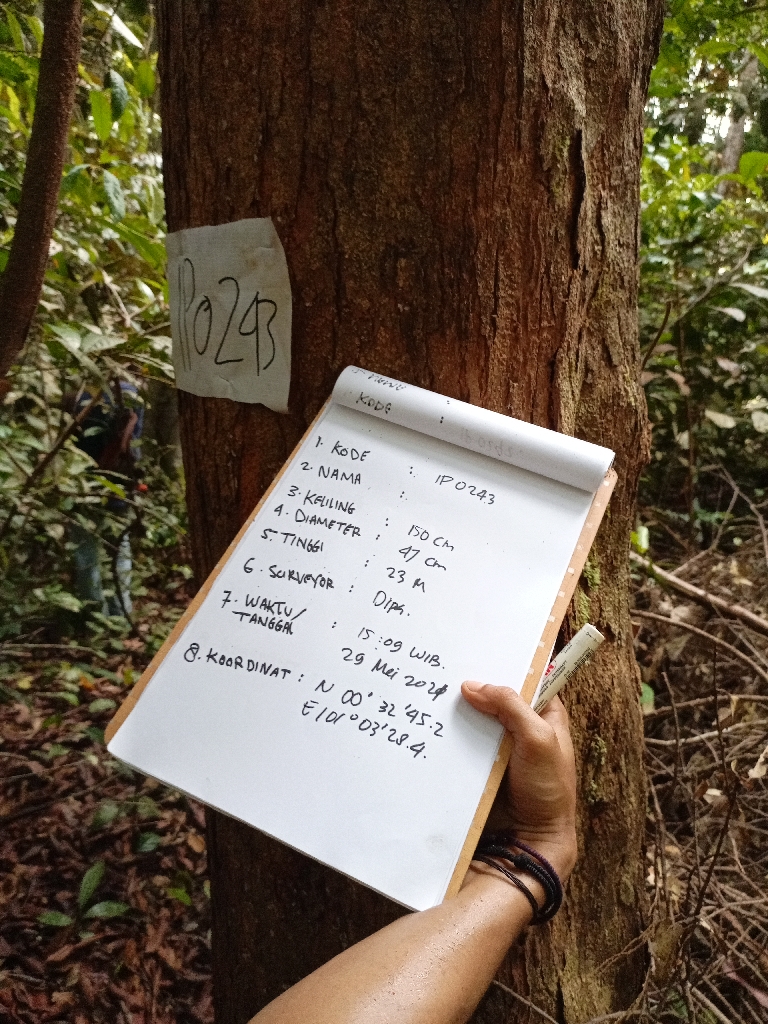 IP0243
KODE :
1. KODE : IP0243
2. NAMA :
3. KELILING : 150 cm
4. DIAMETER : 47 cm
5. TINGGI : 23 M
6. SURVEYOR : Dipa.
7. WAKTU/ : 15:09 WIB.
TANGGAL 29 Mei 2024
8. KOORDINAT : N 00° 32'45.2
E 101° 03'28.4.